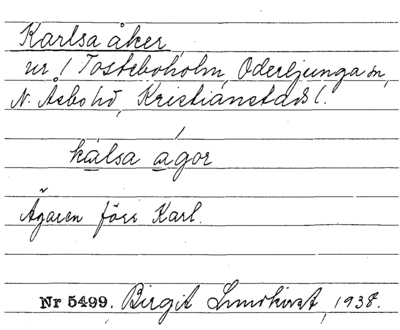 Karlsa åker
ur / Tosteboholm, Oderljunga sn,
N. Åsbo hd, Kristianstads l.
kalsa agor
Ägaren förr Karl.
Nr 5499. Birgit Lundkvist, 1938.